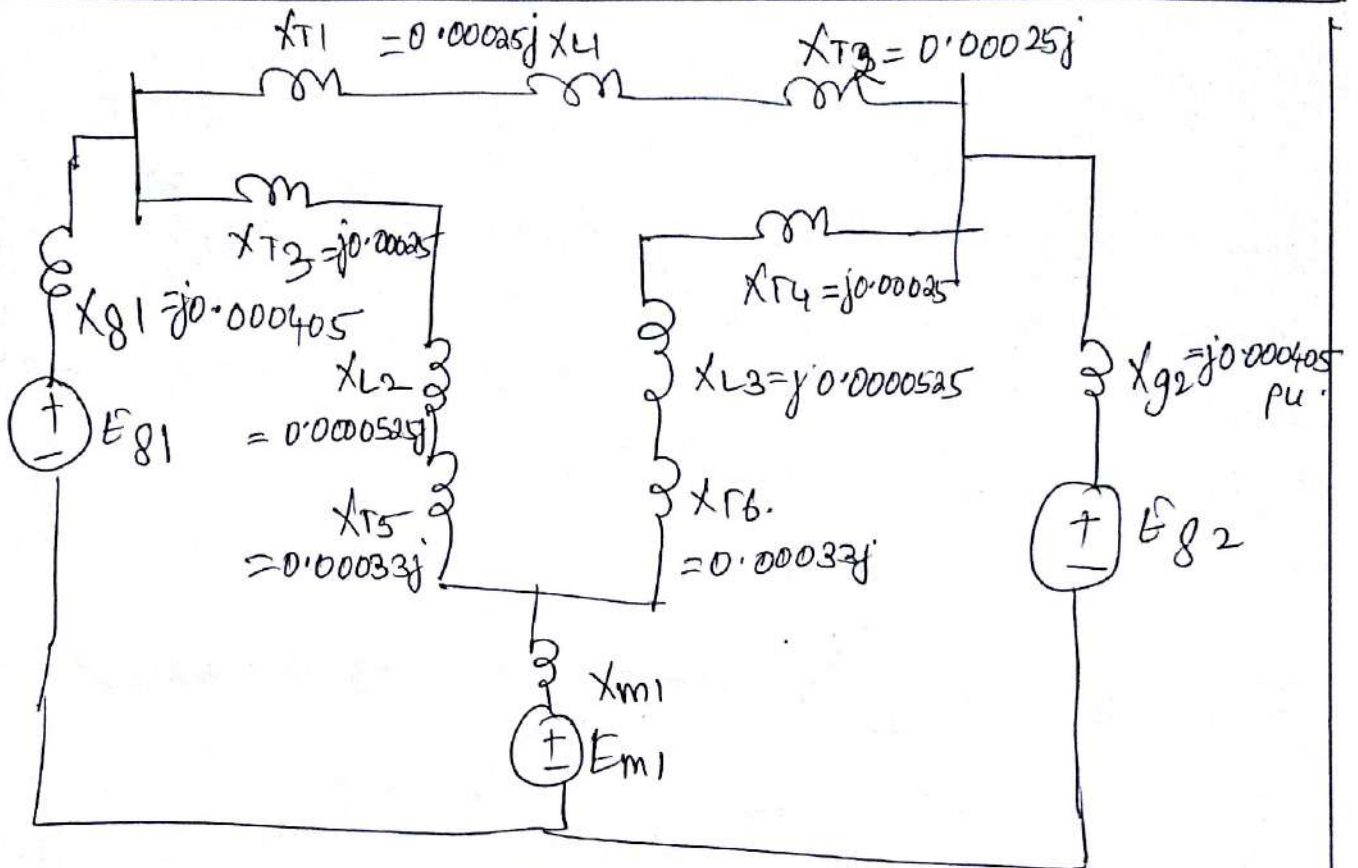 XT1 =0.00025j XL1
XT2= 0.00025j
XT3=j0.00025
XT4=j0.00025
Xg1=j0.000405
XL2
= 0.0000525j
XL3=j0.0000525
Xg2=j0.000405
pu.
Eg1
XT5
=0.00033j
XT6.
=0.00033j
Eg2
Xm1
Em1